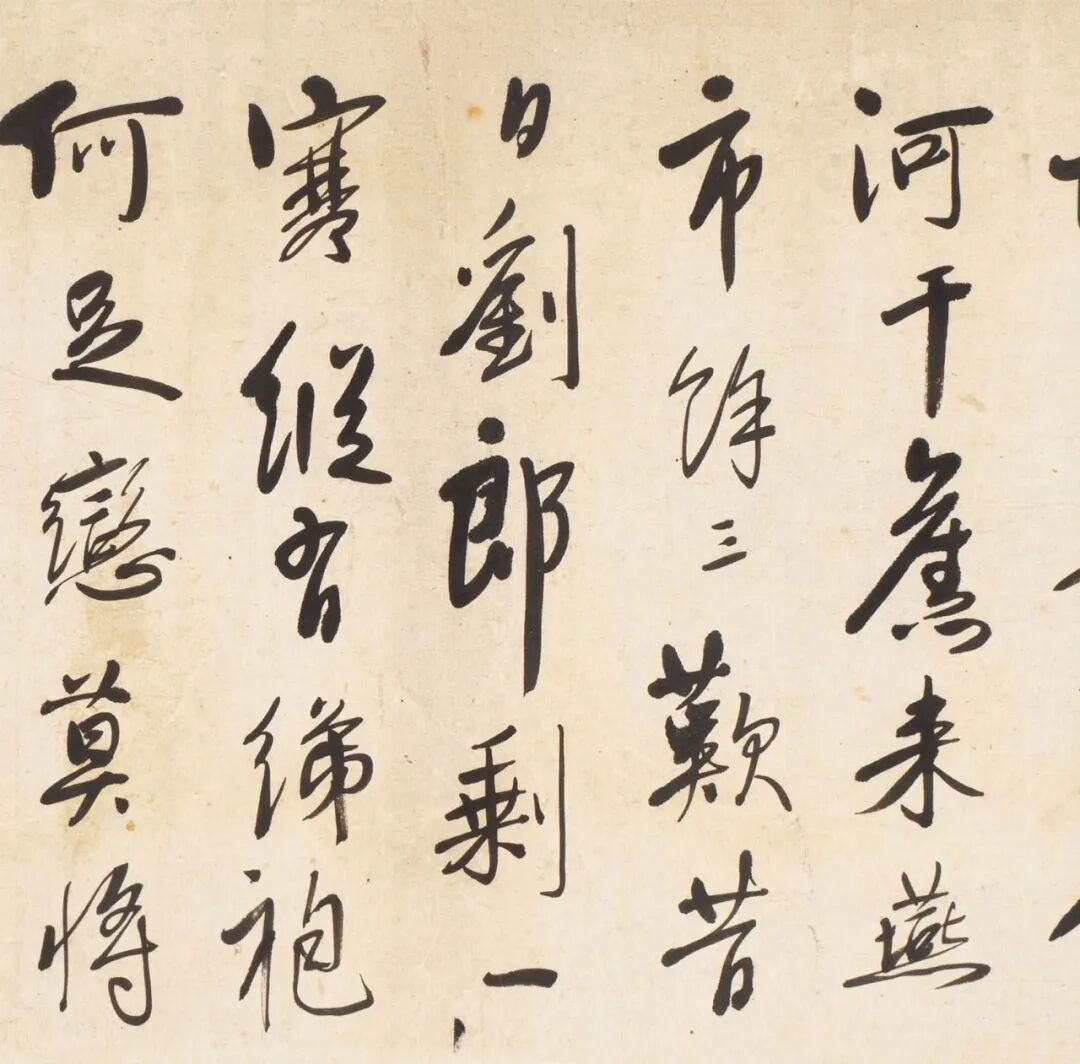 河干舊来燕
市餘三歎昔
日劉郎剩一
寒縱有綈袍
何足戀莫將